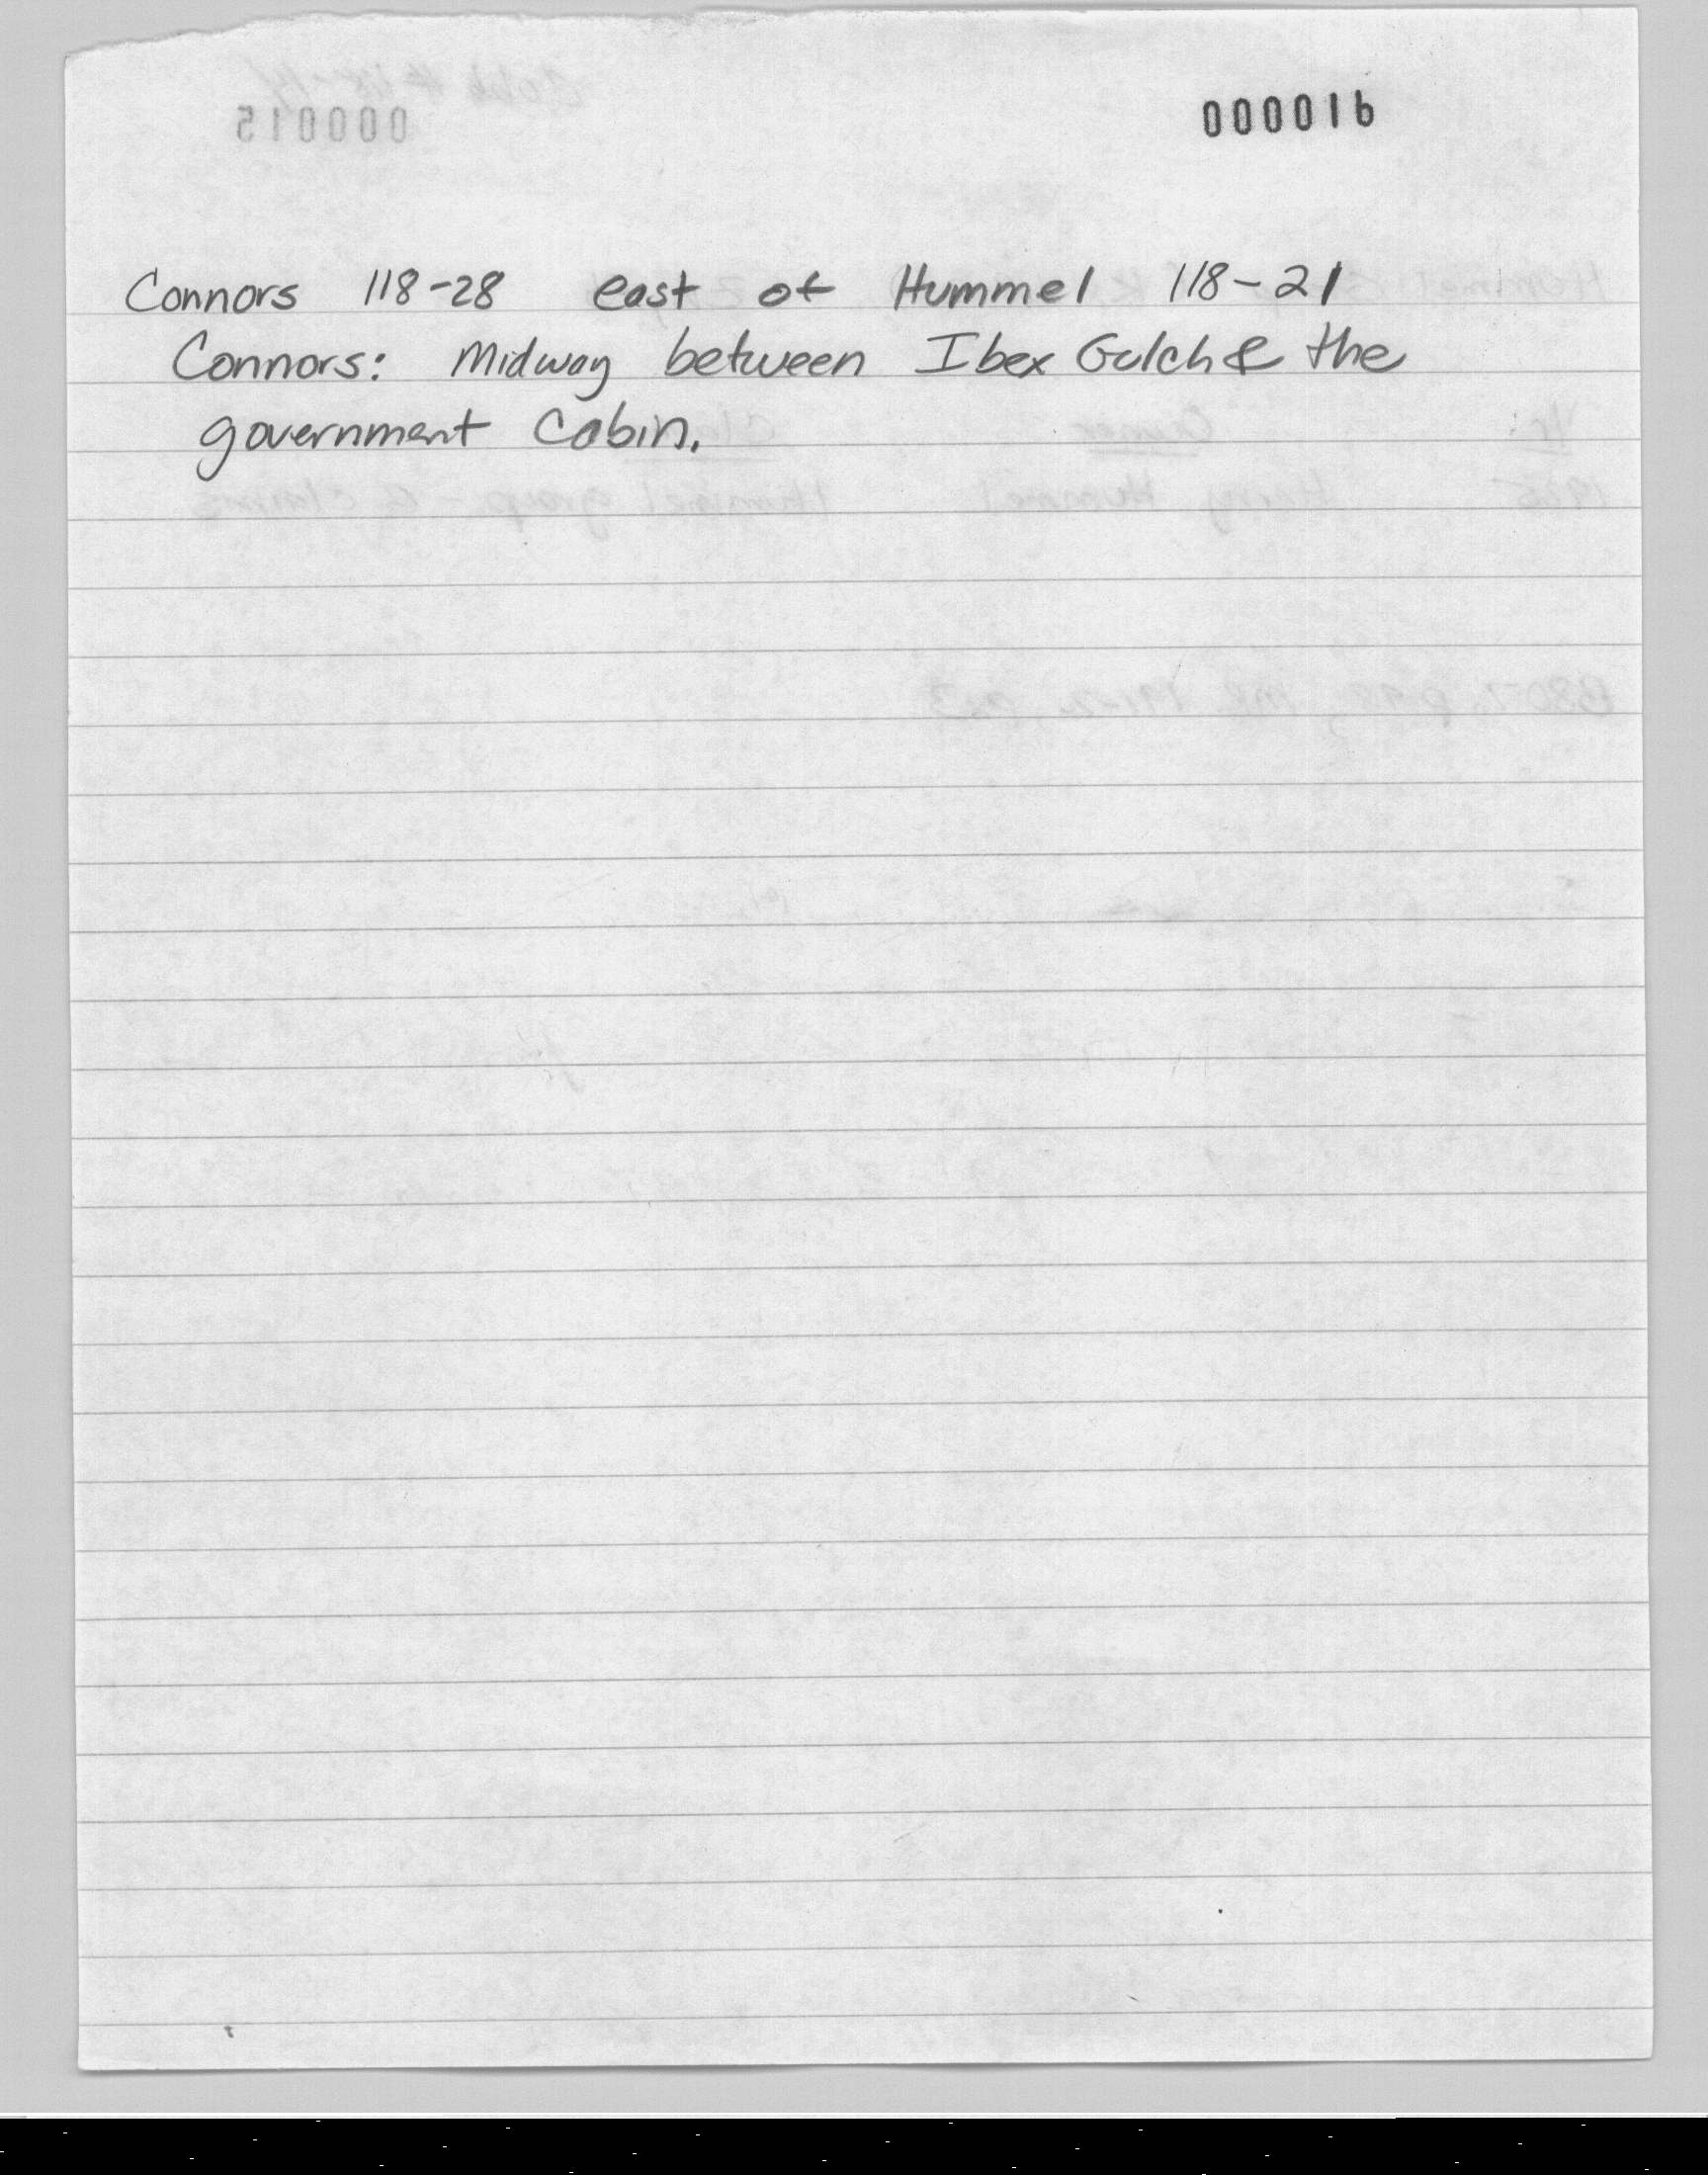 000016
Connors 118-28 east of Hummel 118-21
Connors: Midway between Ibex Gulch & the
government Cabin.